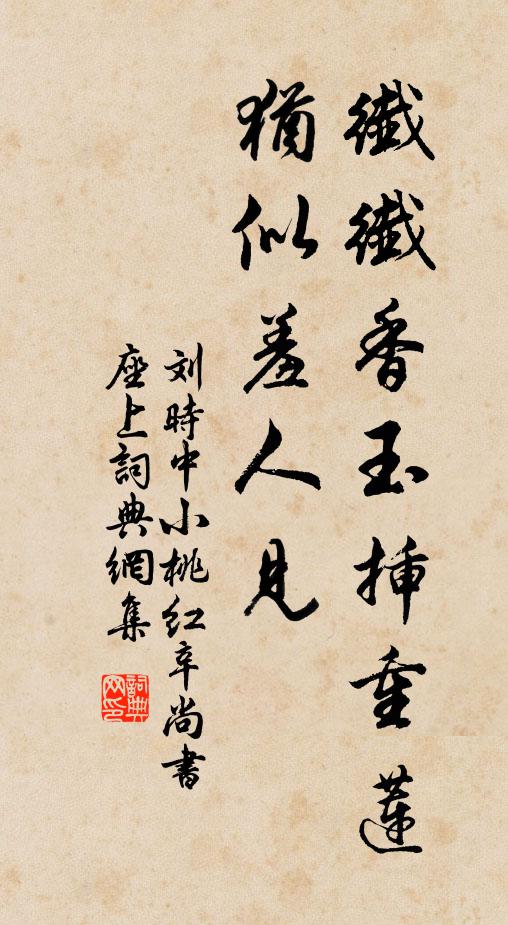 纖纖香玉揷重蓮
猶似羞人見
刘時中小桃红辛尚書
座上詞典網集
詞典網印